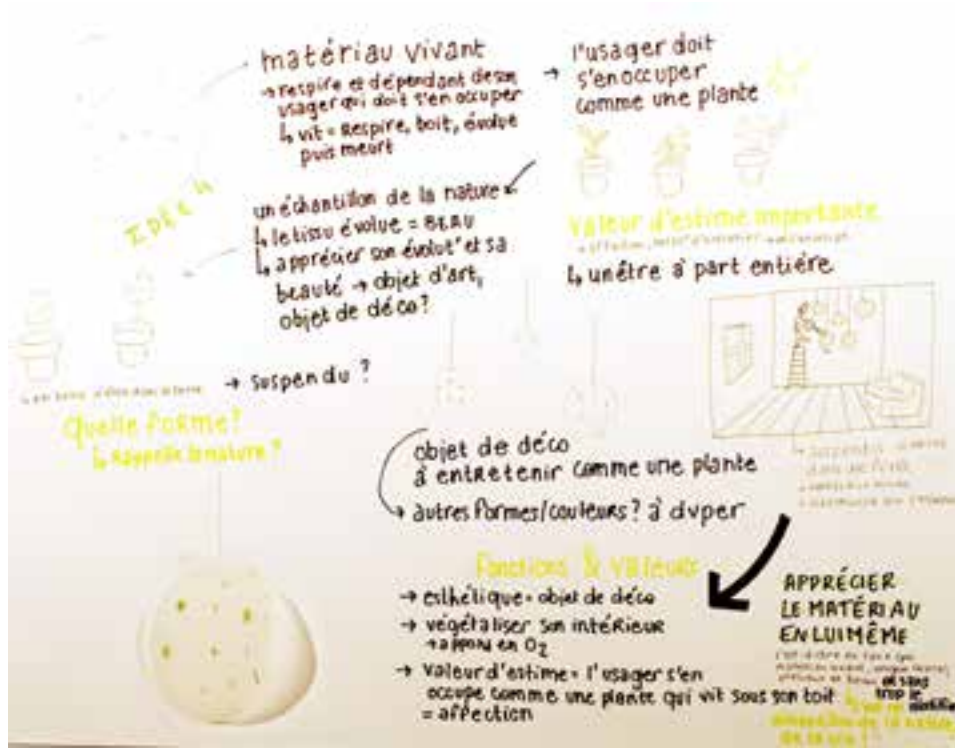 matériau vivant
→ respire et dépendant de son
usager qui doit s'en occuper
↳ vit = respire, boit, évolue
puis meurt
→ l'usager doit
s'en occuper
comme une plante
IDÉE 4
un échantillon de la nature
↳ le tissu évolue = BEAU
↳ apprécier son évolut° et sa
beauté → objet d'art,
objet de déco?
Valeur d'estime importante
↳ un être à part entière
→ suspendu ?
Quelle forme?
↳ Rappelle la nature ?
objet de déco
à entretenir comme une plante
→ autres formes/couleurs? à dvper
Fonctions & valeurs
→ esthétique = objet de déco
→ végétaliser son intérieur
→ apport en O2
→ valeur d'estime = l'usager s'en
occupe comme une plante qui vit sous son toit
= affection
APPRÉCIER
LE MATÉRIAU
EN LUI MÊME
et sans
trop le